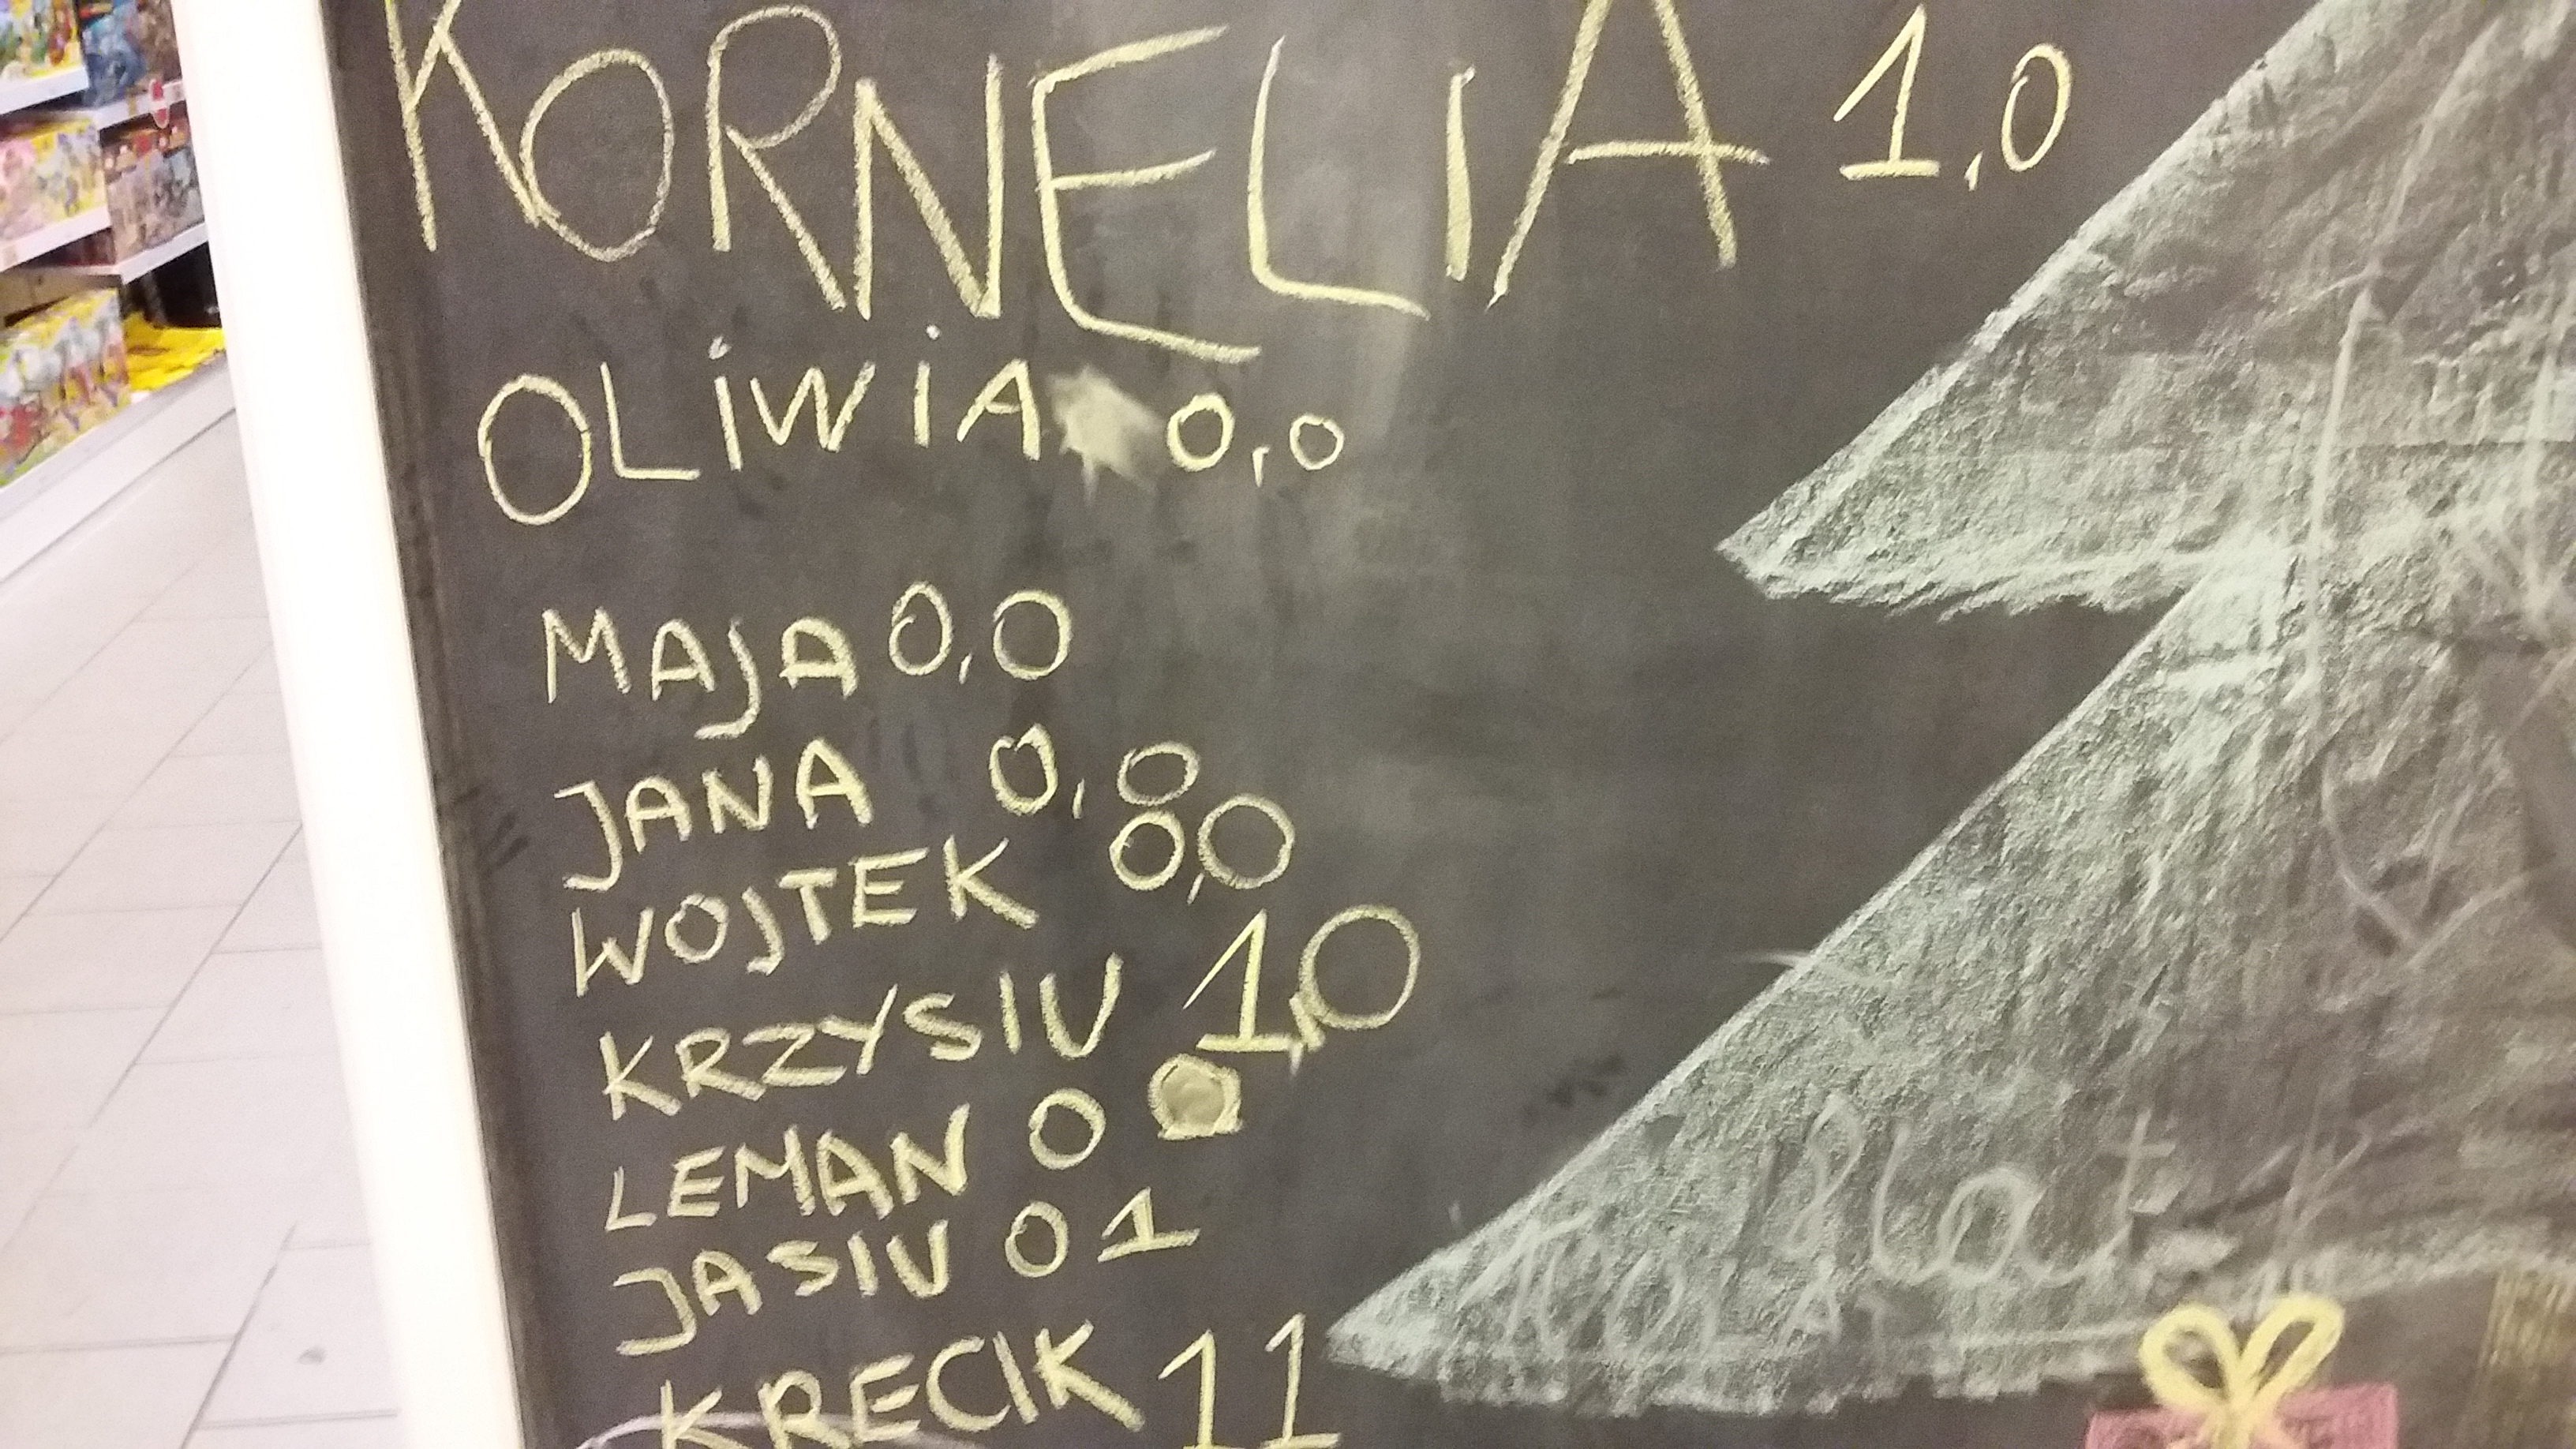 KORNELIA 1,0
OLiWiA 0,0
MAJA 0,0
JANA 0,0
WOJTEK 0,0
KRZYSIU 1,0
LEMAN 0
JASIU 01
KRECIK 11